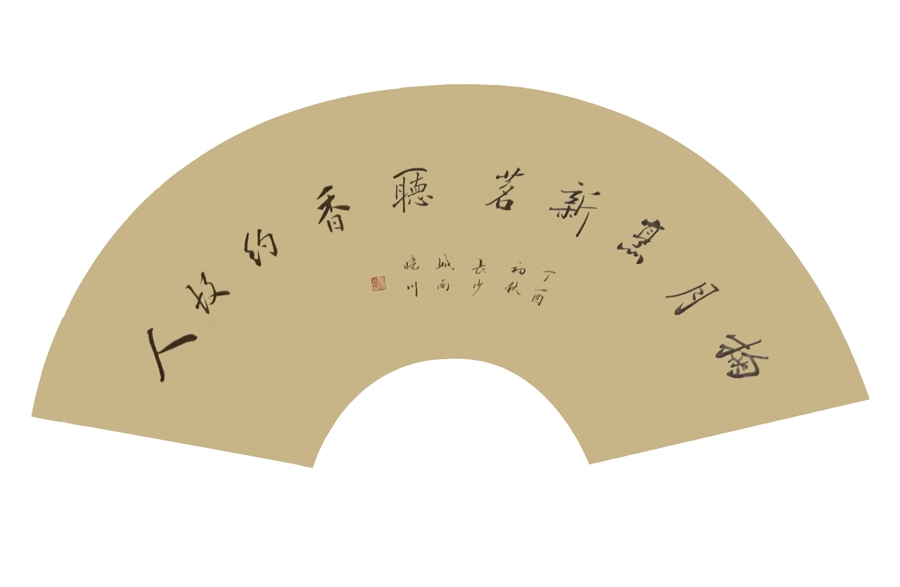 掬月煮新茗聽香約故人
丁酉
初秋
长沙
城南
晓川